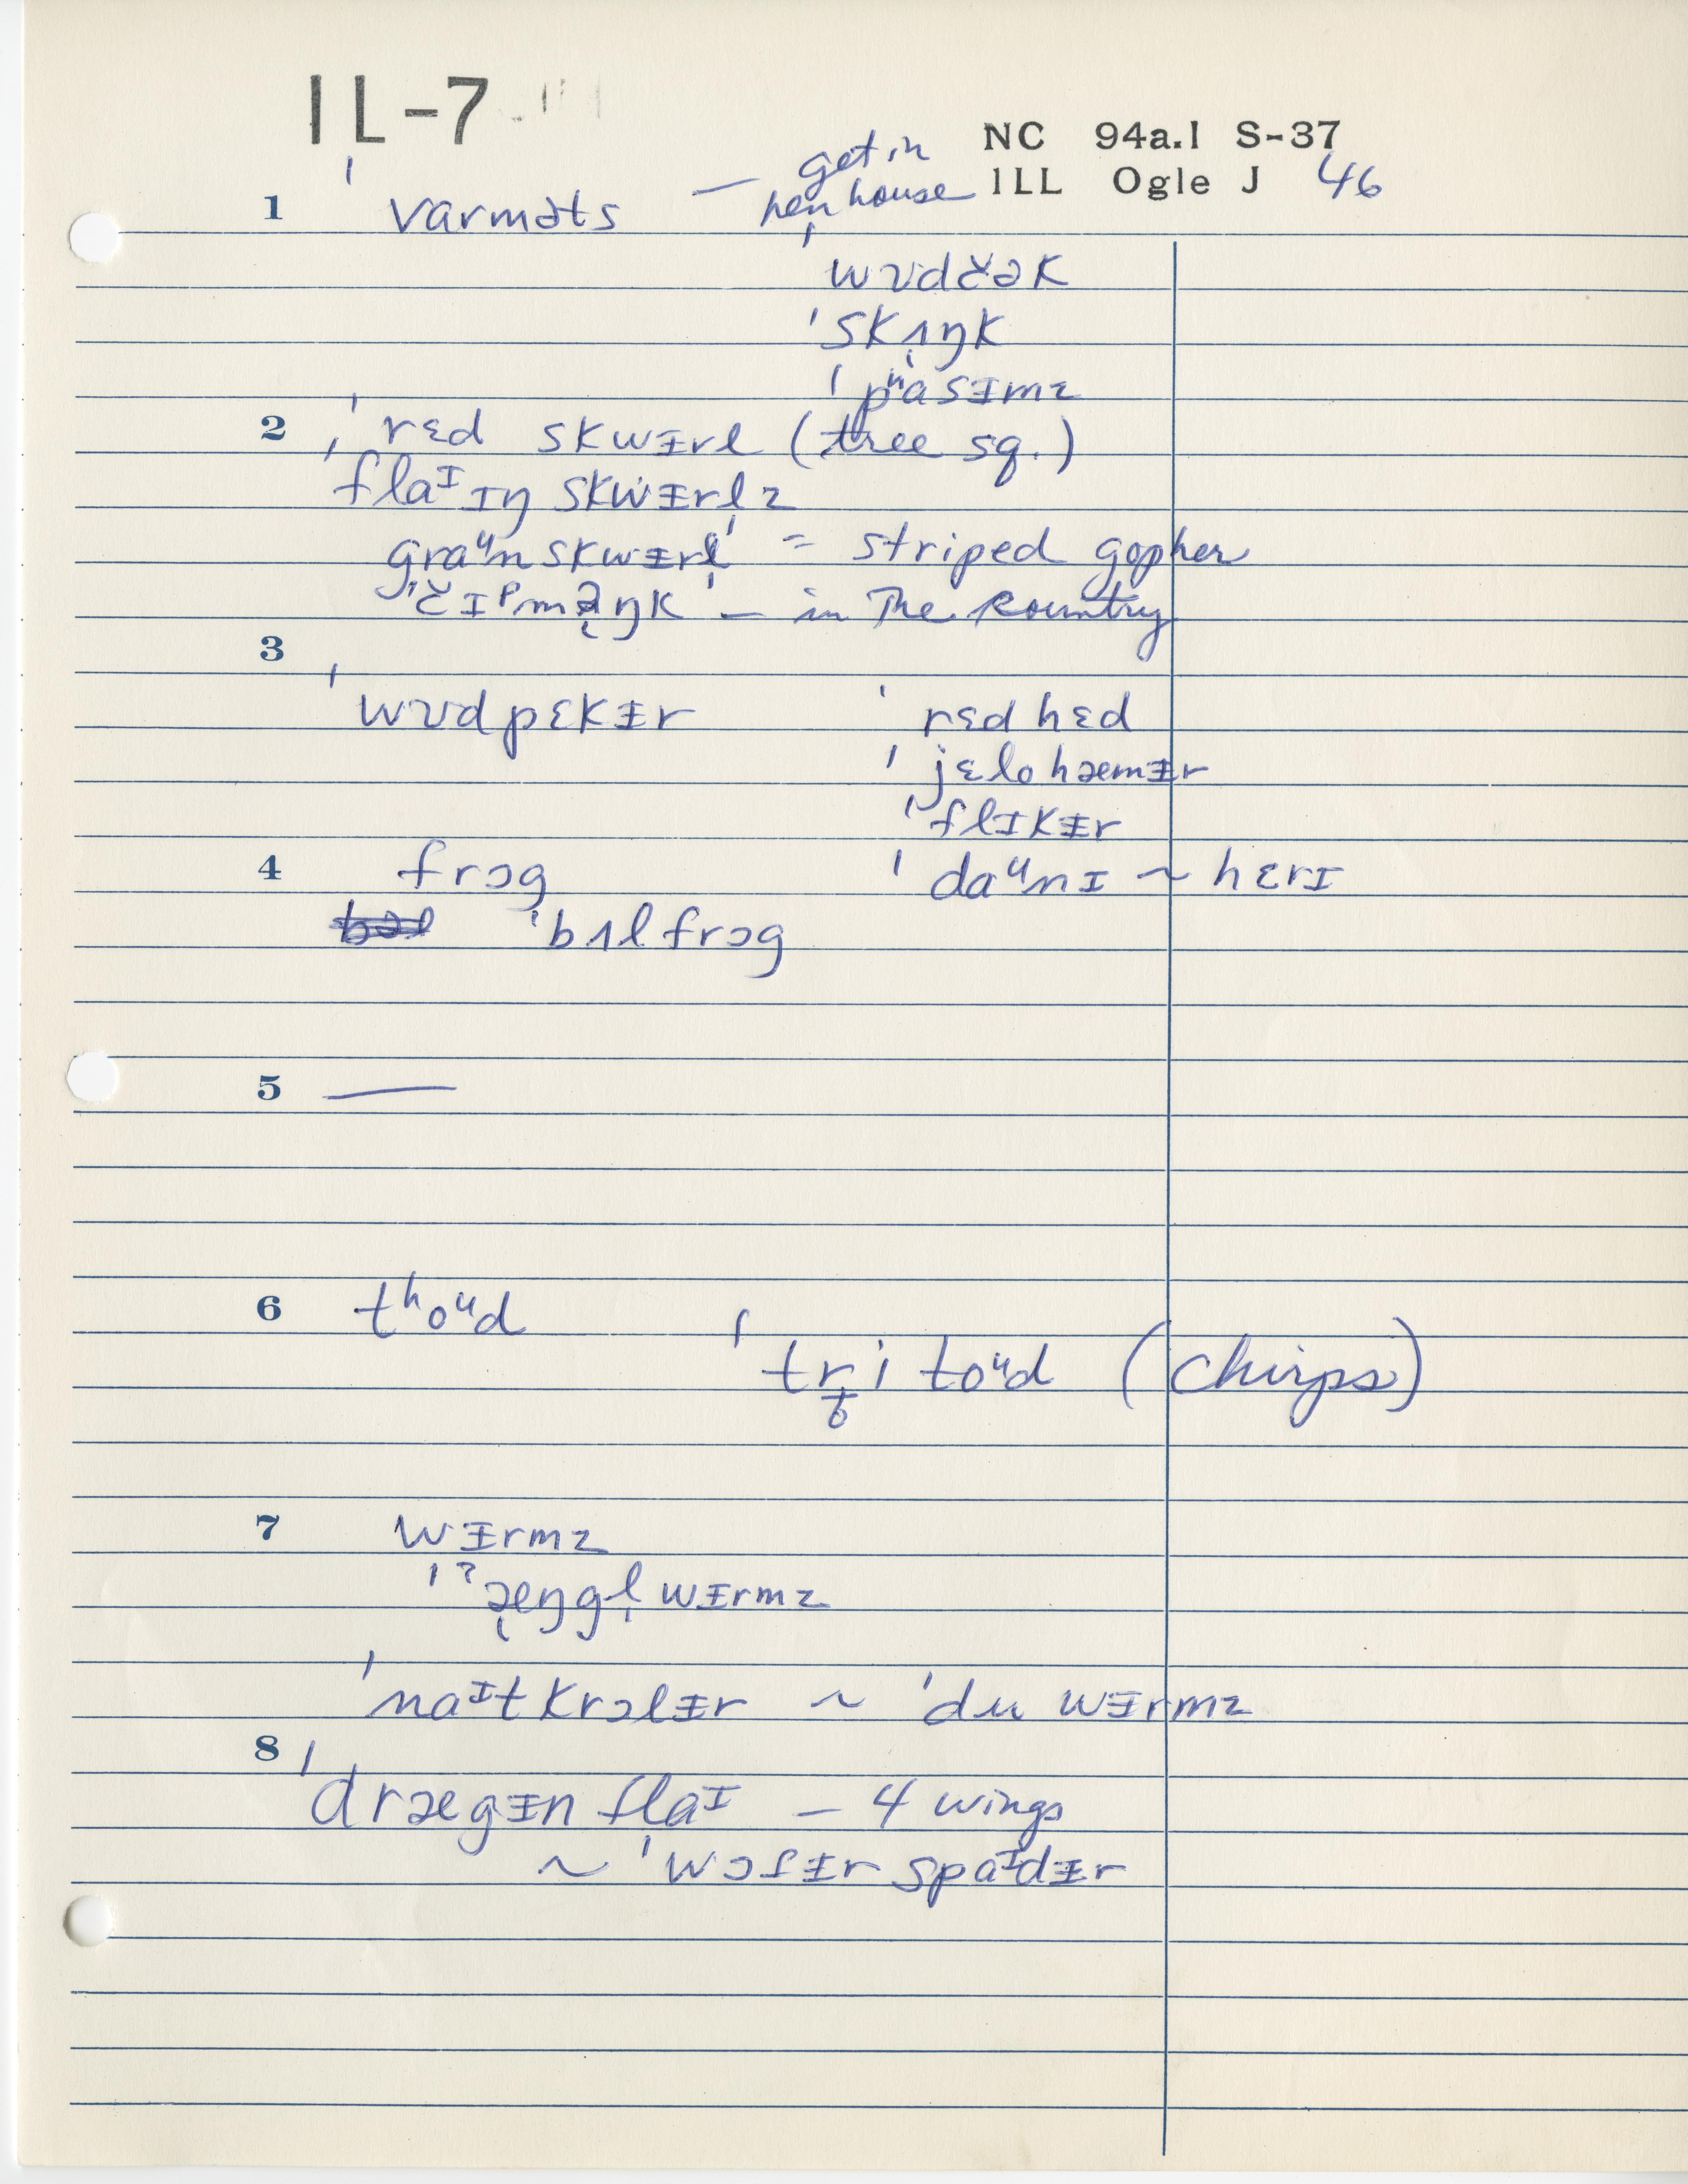 IL-7
NC 94a.1 S-37
ILL Ogle J 46
1 ˈvarməts — get in hen house
ˈwʊdčək
ˈskʌŋk
ˈpʰasɪmz
2 ˈrɛd skwᵻrl (tree sq.)
ˈflaᶦɪŋ skwᵻrlz
graᵘn skwᵻrl̩ = striped gopher
ˈčɪᵖmə̨ŋk — in The Kountry
3
ˈwʊdpɛkᵻr ˈrɛdhɛd
ˈjɛlohæmᵻr
ˈflɪkᵻr
4 frɔg ˈdaᵘnɪ ~ hɛrɪ
ˈbʌlfrɔg
5 —
6 tʰoᵘd
ˈtr̥i toᵘd (chirps)
7 wᵻrmz
ˈˀæŋgl̩wᵻrmz
ˈnaᶦtkrɔlᵻr ~ ˈdu wᵻrmz
8
ˈdrægᵻn flaᶦ — 4 wings
~ ˈwɔtᵻr spaᶦdᵻr